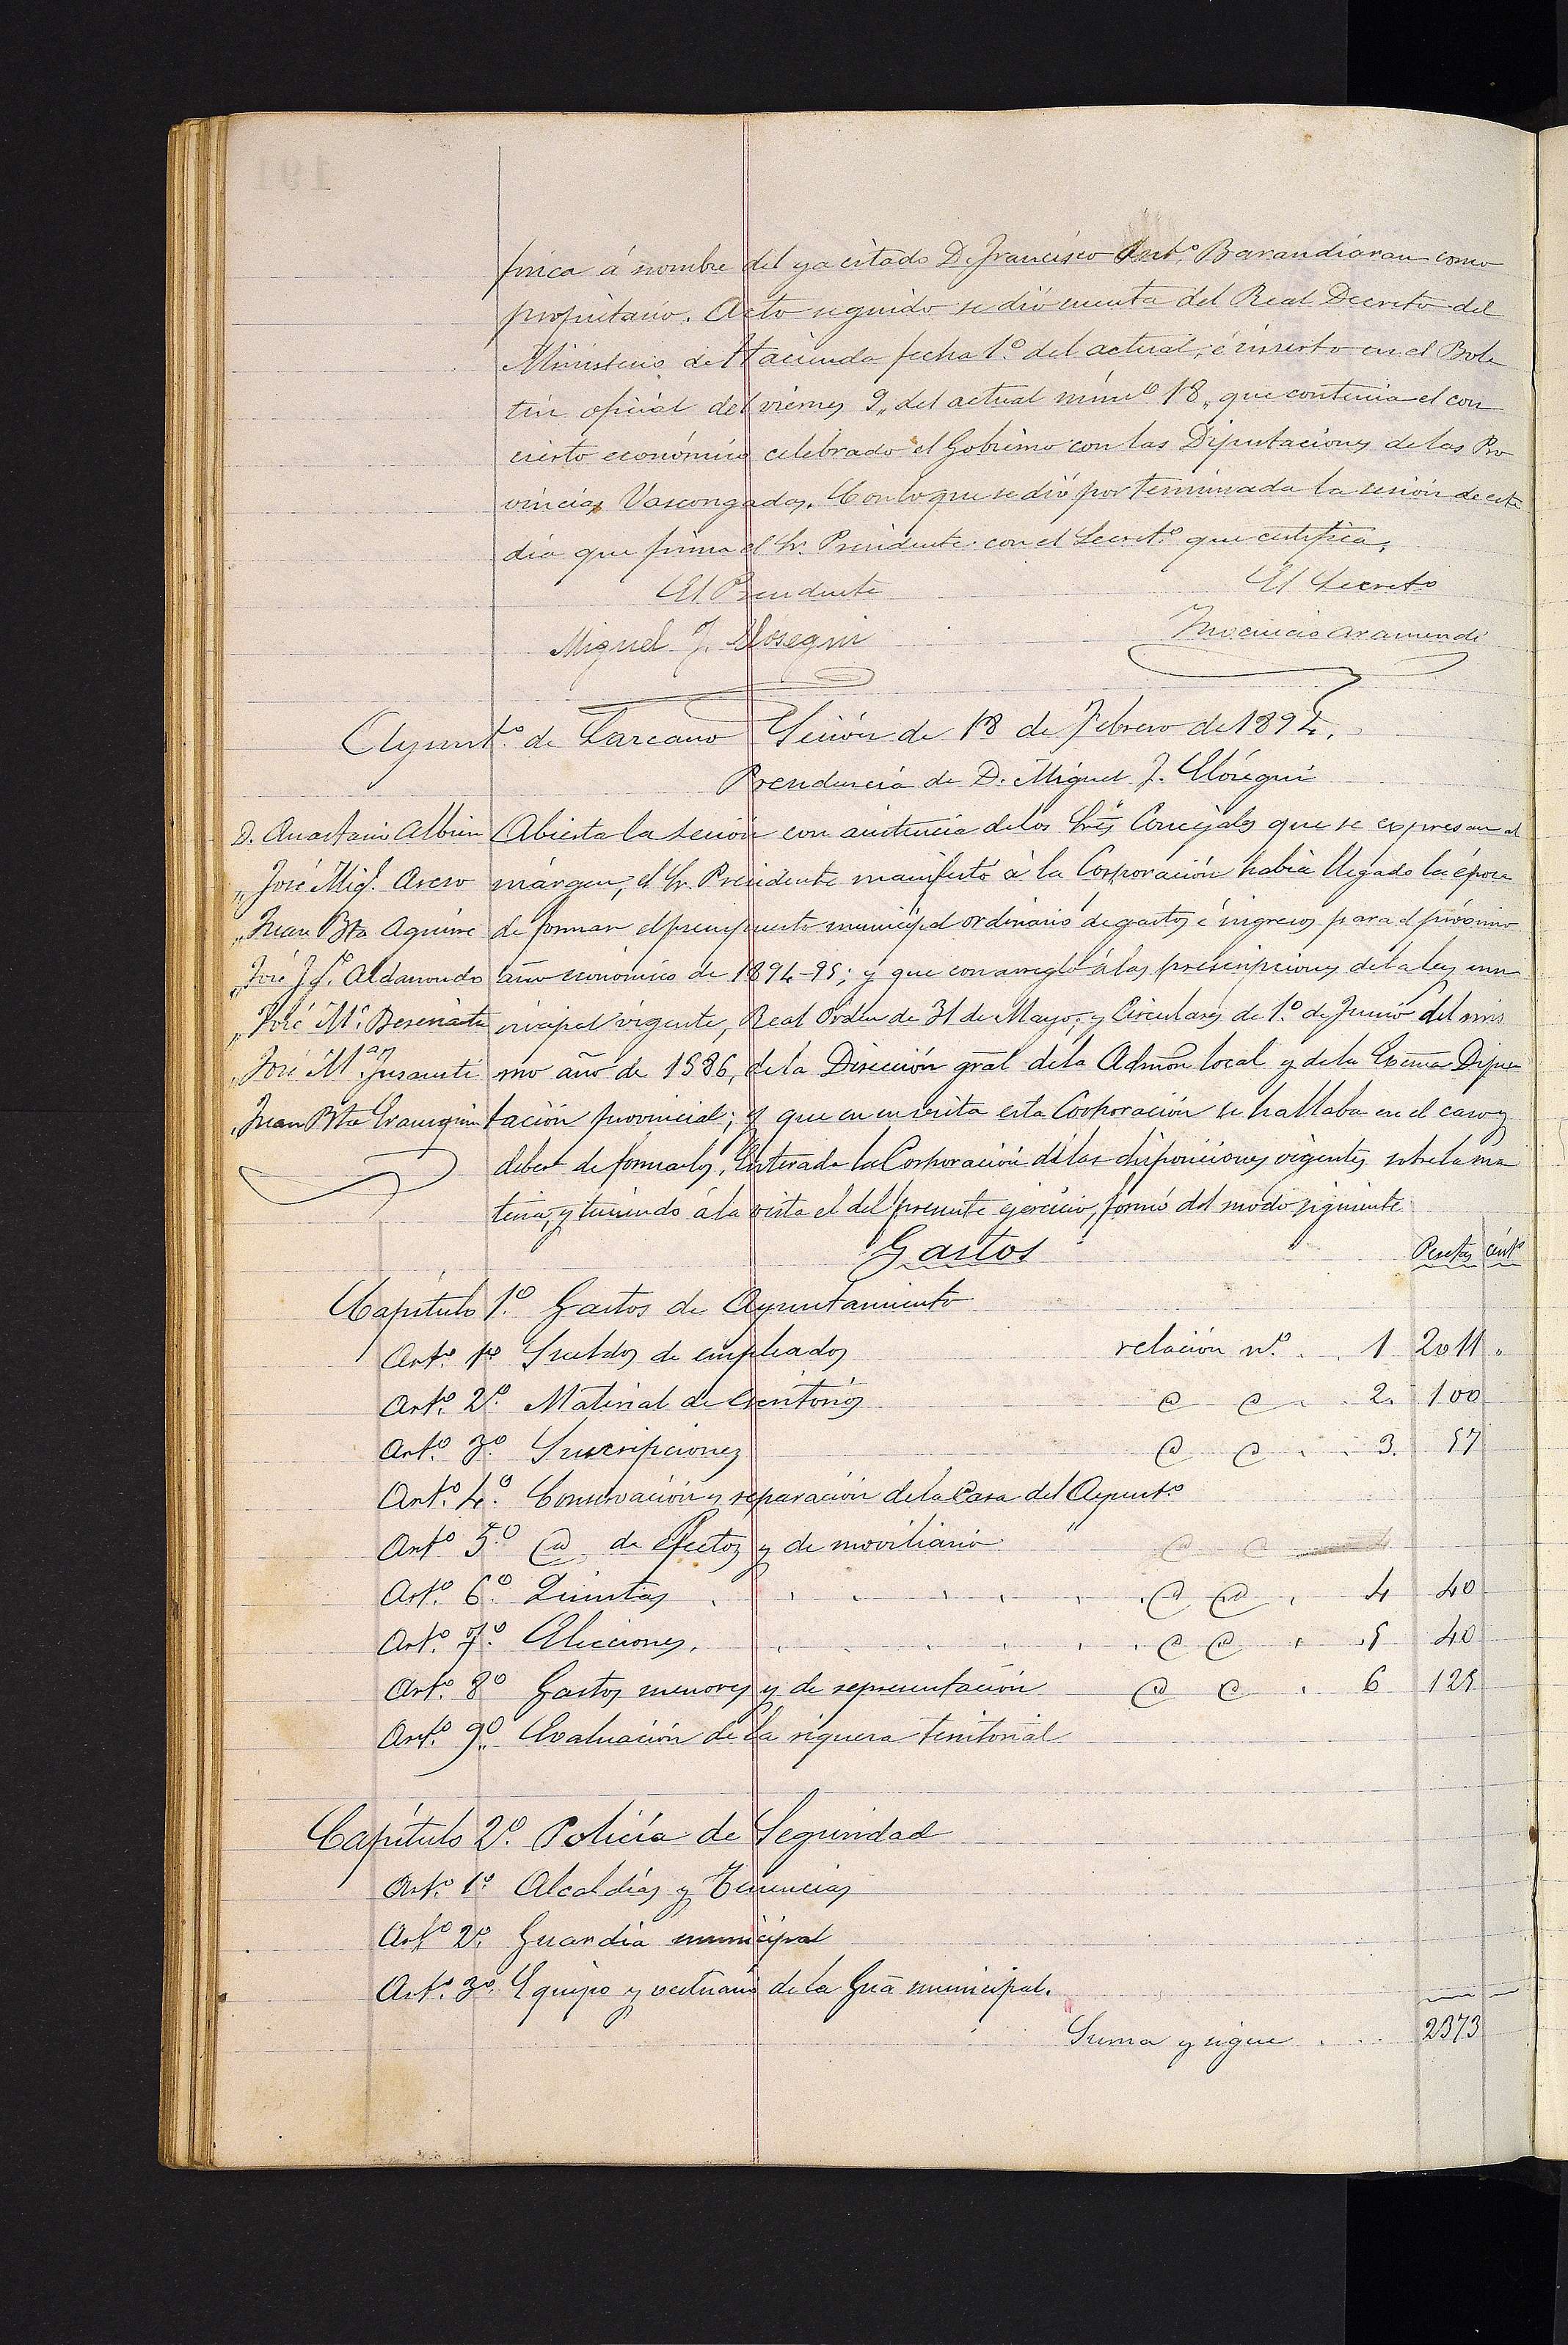 finca á nombre del ya citado D. Francisco Antº. Barandiaran como
propietario. Acto seguido se dió cuenta del Real Decreto del
Ministerio de Hacienda fecha 1º. del actual, é inserto en el Bole
tin oficial del viernes 9,, del actual númº 18,, que contenia el con
cierto económico celebrado el Gobierno con las Diputaciones de las Pro
vincias Vascongadas. Con lo que se dió por terminada la sesión de este
dia que firma el Sr. Presidente con el Secretº. que certifica.
El Presidente
El Secretº
Miguel J. Elósegui
Inocencio Aramendi
Ayuntº. de Larcano Sesión de 18 de Febrero de 1894.
Presidencia de D. Miguel J. Elósegui
D. Anastasio Albisu
,, José Migl. Asero
,, Juan Bta Aguirre
,, José Aldanondo
,, José Mª. Berasiartu
,, José Mª. Insausti
,, Juan Bta
Abierta la sesión con asistencia de los Srēs Concejales que se expresan al
márgen, el Sr. Presidente manifestó á la Corporación habia llegado la época
de formar el presupuesto municipal ordinario de gastos é ingresos para el próximo
año económico de 1894-95; y que con arreglo á las prescripciones de la ley mu
nicipal vigente, Real Orden de 31 de Mayo, y Circulares de 1º. de Junio del mis
mo año de 1886, de la Dirección gral de la Admōn local y de la Excma Dipu
tación provincial; y que en su vista esta Corporación se hallaba en el caso y
deber de formarlos. Enterada la Corporación de las disposiciones vigentes sobre la ma
teria, y teniendo á la vista el del presente ejercicio, formó del modo siguiente
Gastos Pesetas céntº
Capítulo 1º. Gastos de Ayuntamiento
Artº. 1º Sueldos de empleados relación nº. . . 1 2011 "
Artº. 2º. Material de Escritorios @ @ . . 2. 100
Artº. 3º. Suscripciones @ @ . . 3. 57
Artº. 4º. Conservación y reparación de la Casa del Ayuntº
Artº 5º @ de Efectos y de moviliario " @ @
Artº. 6º. Quintas . . . . . . @ @ . 4 40
Artº. 7º. Elecciones. . . . . . @ @ . 5 40
Artº. 8º Gastos menores y de representación @ @ . 6 125
Artº. 9º. Evaluación de la riqueza territorial
Capítulo 2º. Policía de Seguridad
Artº. 1º. Alcaldías y Tenencias
Artº 2º. Guardia municipal
Artº. 3º. Equipo y vestuario de la Guā municipal.
Suma y sigue . . . 2373